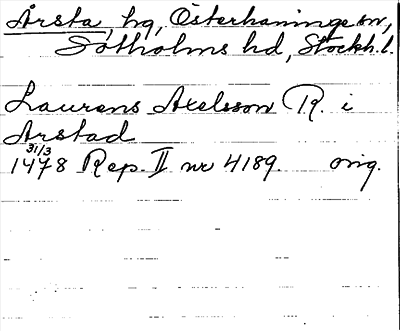 Årsta, hg, Österhaninge sn,
Sotholms hd, Stockh. l.
Laurens Axelsson R. i
Arstad
31/3
1478 Rep. II nr 4189. orig.